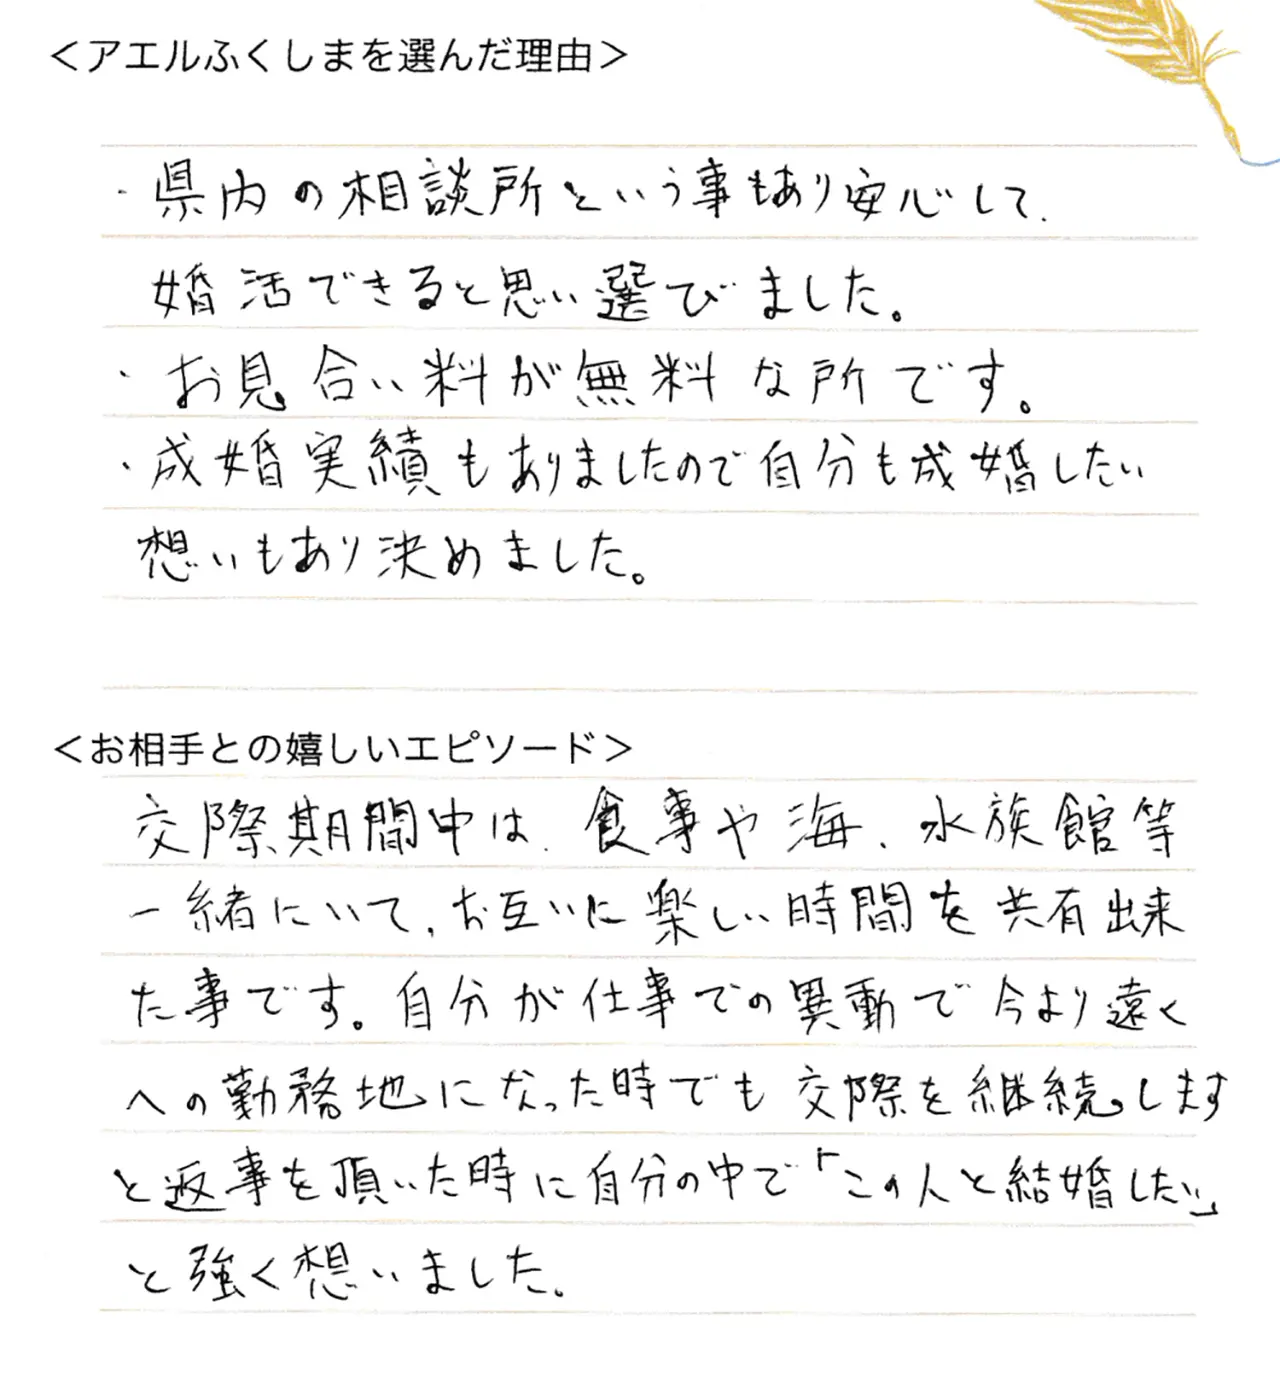 ＜アエルふくしまを選んだ理由＞
・県内の相談所という事もあり安心して、
婚活できると思い選びました。
・お見合い料が無料な所です。
・成婚実績もありましたので自分も成婚したい
想いもあり決めました。
＜お相手との嬉しいエピソード＞
交際期間中は、食事や海、水族館等
一緒にいて、お互いに楽しい時間を共有出来
た事です。自分が仕事での異動で今より遠く
への勤務地になった時でも交際を継続します
と返事を頂いた時に自分の中で「この人と結婚したい」
と強く想いました。